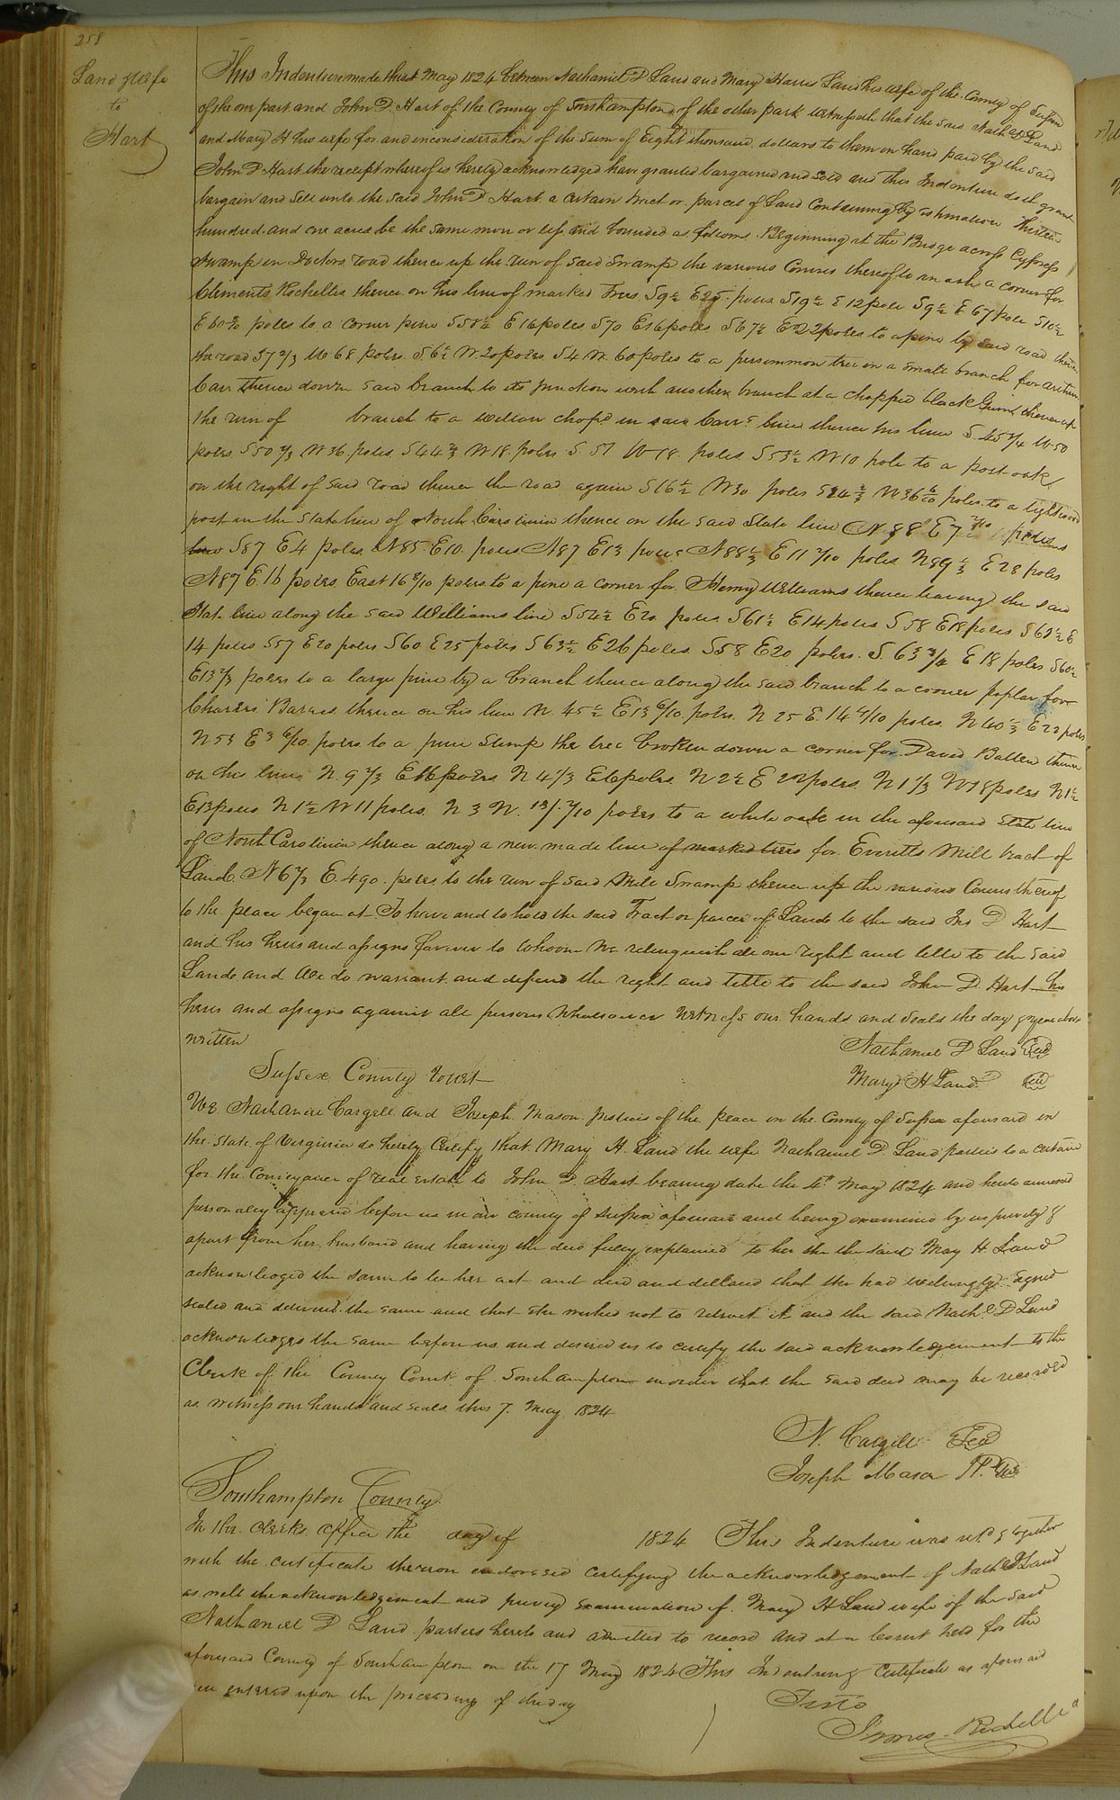 258
Land & wife
to
Hart
This Indenture made this 4th May 1824 between Nathaniel D Land and Mary Harris Land his wife of the County of Sussex
of the one part and John D Hart of the County of Southampton of the other park witnesseth that the said Nathl D Land
and Mary H his wife for and inconsideration of the Sum of Eight thousand dollars to them in hand paid by the said
John D Hart the receipt whereof is hereby acknowledged have granted bargained and sold and this Indenture doth grant
bargain and sell unto the said John D Hart a certain tract or parcel of Land Containing by estimation thirteen
hundred and one acres be the same more or less and bounded as follows. Beginning at the Bridge across Cypress
Swamp in Doctors road thence up the run of said Swamp the various Courses thereof to an ash a corner for
Clements Rochelles thence on his line of marked Trees. S9½ E25 poles S19½ E12 pole S9½ E67 pole S10½
E poles to a corner pine S55½ E16 poles S70 E16 poles S67½ E22 poles to a pine by said road thence
the road S7⅔ W68 poles S6½ W20 poles S4 W60 poles to a persommon tree on a small branch for
Carr thence down said branch to its junction with another branch at a chopped black Gum thence up
the run of branch to a chopd in said Carrs line thence his line S45¼ W50
poles S50⅔ W36 poles S44⅔ W18 poles S51 W18 poles S53½ W10 pole to a post oak
on the right of said road thence the road again S16½ W30 poles S24⅔ W36 6/10 poles to a lightwood
post in the State line of North Carolinia thence on the said State line N88 E7 poles
S87 E4 poles N85 E10 poles N87 E13 poles N88⅓ E11 7/10 poles N89⅓ E28 poles
N87 E16 poles East 16 8/10 poles to a pine a corner for Henry Williams thence leaving the said
State line along the said Williams line S54½ E20 poles S61½ E14 poles S58 E18 poles S62½ E
14 poles S57 E20 poles S60 E25 poles S63½ E26 poles S58 E20 poles S63¾ E18 poles S60½
E13⅓ poles to a large pine by a branch thence along the said branch to a corner poplar for
Charles Barnes thence on his line N45½ E13 6/10 poles N25 E14 4/10 poles N40⅓ E22 poles
N53 E3 6/10 poles to a pine Stump the tree broken down a corner for David Ballen thence
on his line N9⅔ E16 poles N4⅓ E6 poles N2½ E22 poles N1⅓ W18 poles N1½
E13 poles N1½ W11 poles N3 W 13 7/10 poles to a white oak in the aforesaid State line
of North Carolinia thence along a new made line of marked trees for Everetts Mill tract of
Land. N6⅔ E490 poles to the run of said Mill Swamp thence up the various Courses thereof
to the place began at To have and to hold the said Tract or parcel of Lands to the said Jno D Hart
and his heirs and assigns forever to whom we relinquish all our right and title to the said
Lands and We do warrant and defend the right and title to the said John D. Hart his
heirs and assigns against all persons whatsoever Witness our hands and seals the day & year above
written
Nathaniel D Land Seal
Mary H Land Seal
Sussex County towit
We Nathaniel Cargill and Joseph Mason Justices of the peace in the County of Sussex aforesaid in
the State of Verginia do hereby Certify that Mary H. Land the wife Nathaniel D Land parties to a certain
for the Conveyance of real estate to John D Hart bearing date the 4th May 1824 and hereto annexed
personally appeared before us in our county of Sussex aforesaid and being examined by us privily &
apart from her husband and having the deed fully explained to her the the said Mary H Land
acknowledged the same to be her act and deed and declared that she had willingly signed
sealed and delivered the same and that she wished not to retract it and the said Nathl D Land
acknowledges the same before us and desired us to certify the said acknowledgement to the
Clerk of the County Court of Southampton in order that the said deed may be recorded
as witness our hands and seals this 7. May 1824
N. Cargill Seal
Joseph Mason JP. Seal
Southampton County
In the Clerks office the day of 1824 This Indenture was retd & together
with the certificate thereon endorsed certifying the acknowledgement of Nathl D Land
as well the acknowledgement and privy examination of Mary H Land wife of the said
Nathaniel D Land parties hereto and admitted to record and at a Court held for the
aforesaid County of Southampton on the 17 May 1824 This Indenture & Certificate as aforesaid
entered upon the proceedings of the day
Teste
James Rochelle